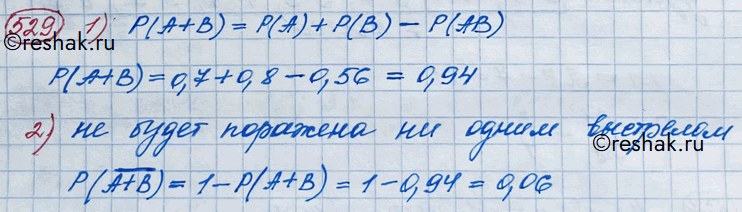 529. 1) P(A+B) = P(A) + P(B) − P(AB)
©reshak.ru
P(A+B) = 0,7 + 0,8 − 0,56 = 0,94
2) не будет поражена ни одним выстрелом
P(\overline{A+B}) = 1 − P(A+B) = 1 − 0,94 = 0,06
©reshak.ru